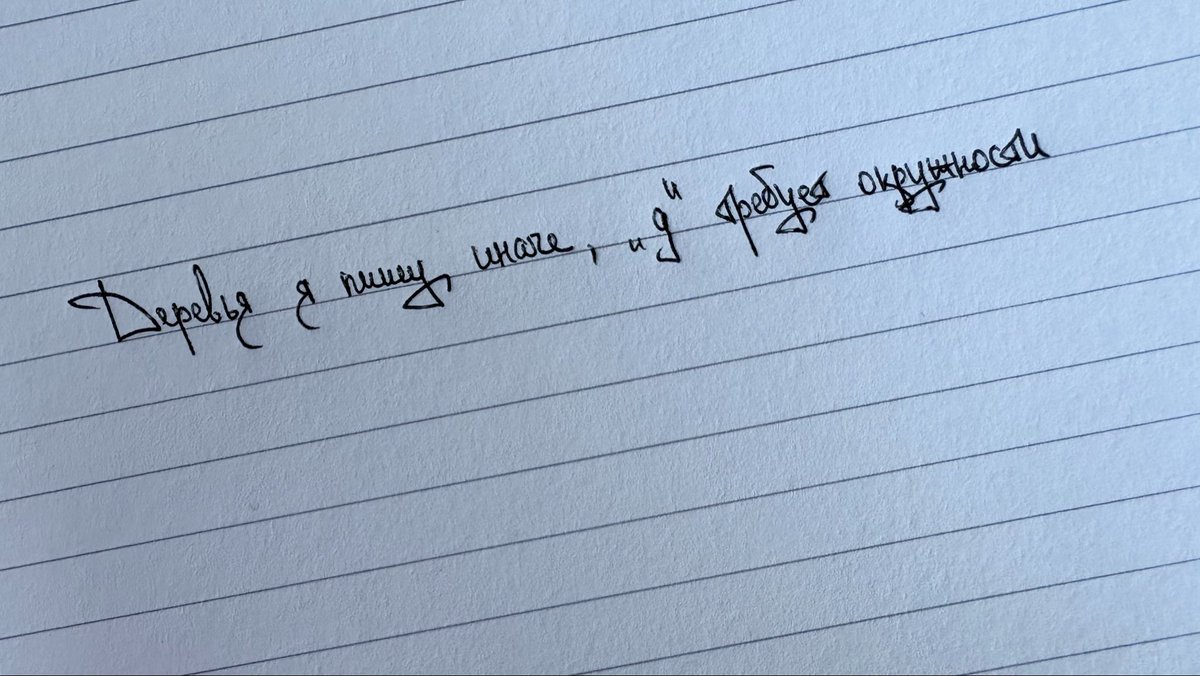 Деревья я пишу иначе, „д“ требует окружности